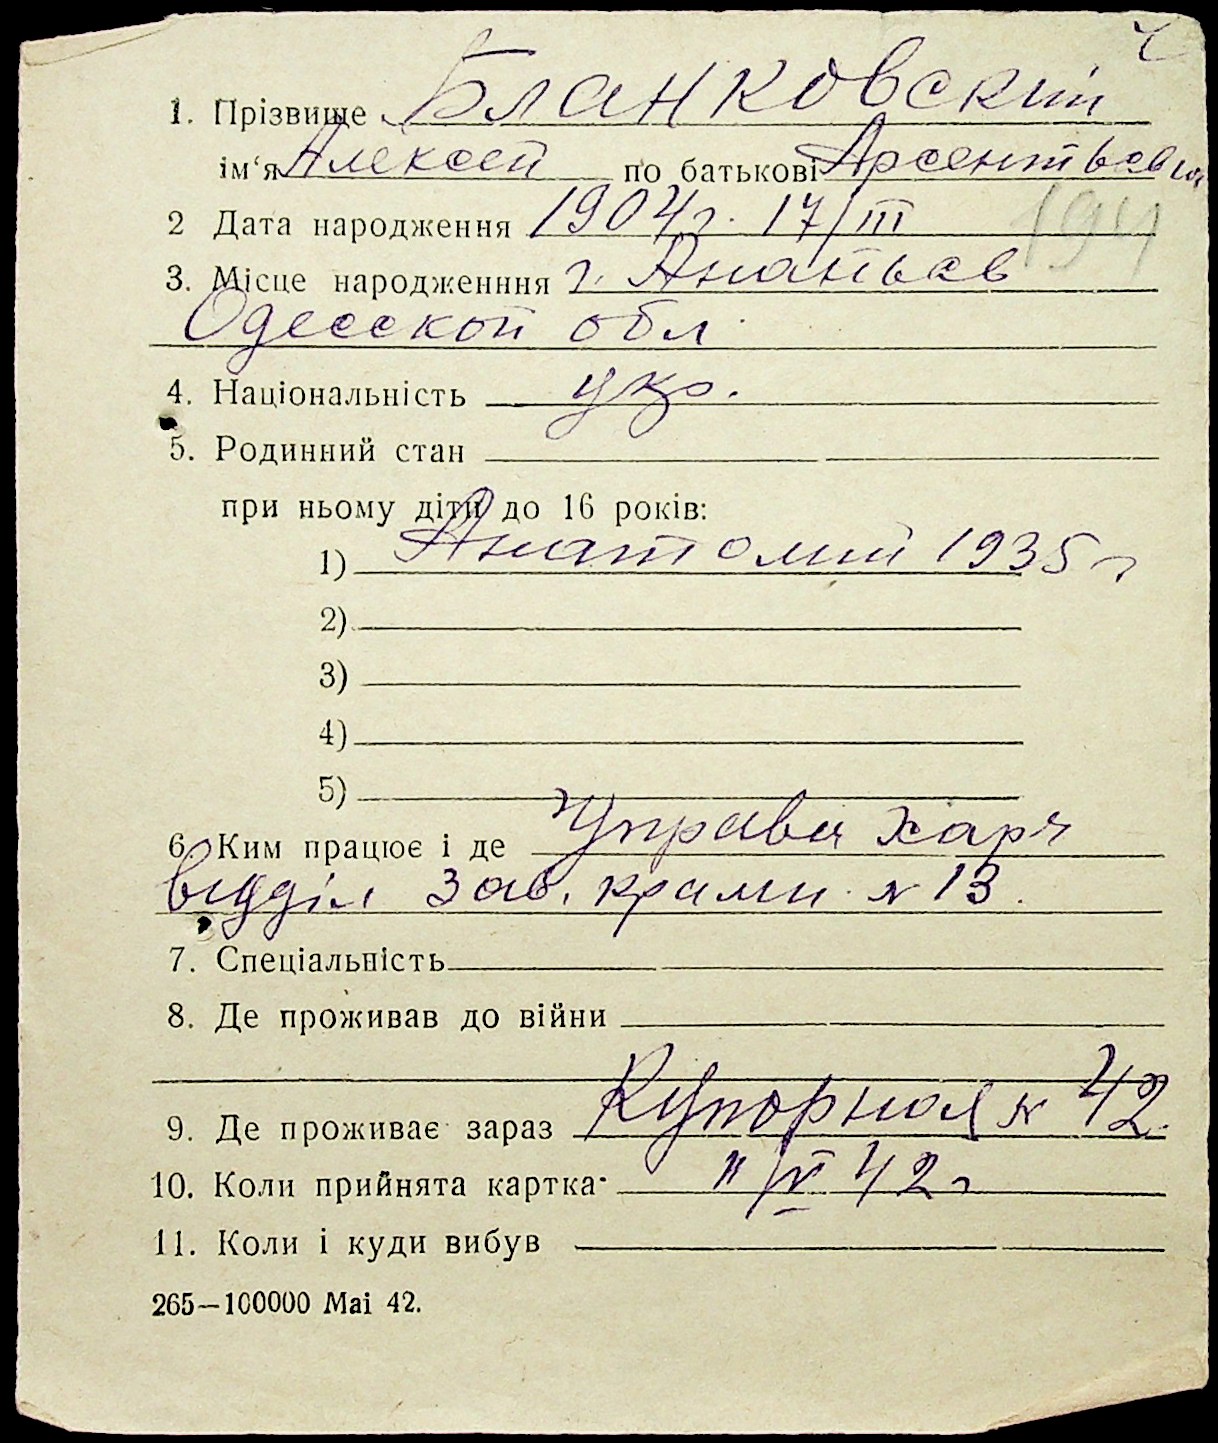 ч
1. Прізвище Бланковский
ім'я Алексей по батькові Арсентьевич
2 Дата народження 1904 г. 17/III 1941
3. Місце народженння г. Ананьев
Одесской обл.
4. Національність укр.
5. Родинний стан
при ньому діти до 16 років:
1) Анатолий 1935 г
2)
3)
4)
5)
6. Ким працює і де Управа харч
відділ Зав. крамн. № 13.
7. Спеціальність
8. Де проживав до війни
9. Де проживає зараз Купорная № 42.
10. Коли прийнята картка 42 г
11. Коли і куди вибув
265—100000 Маі 42.